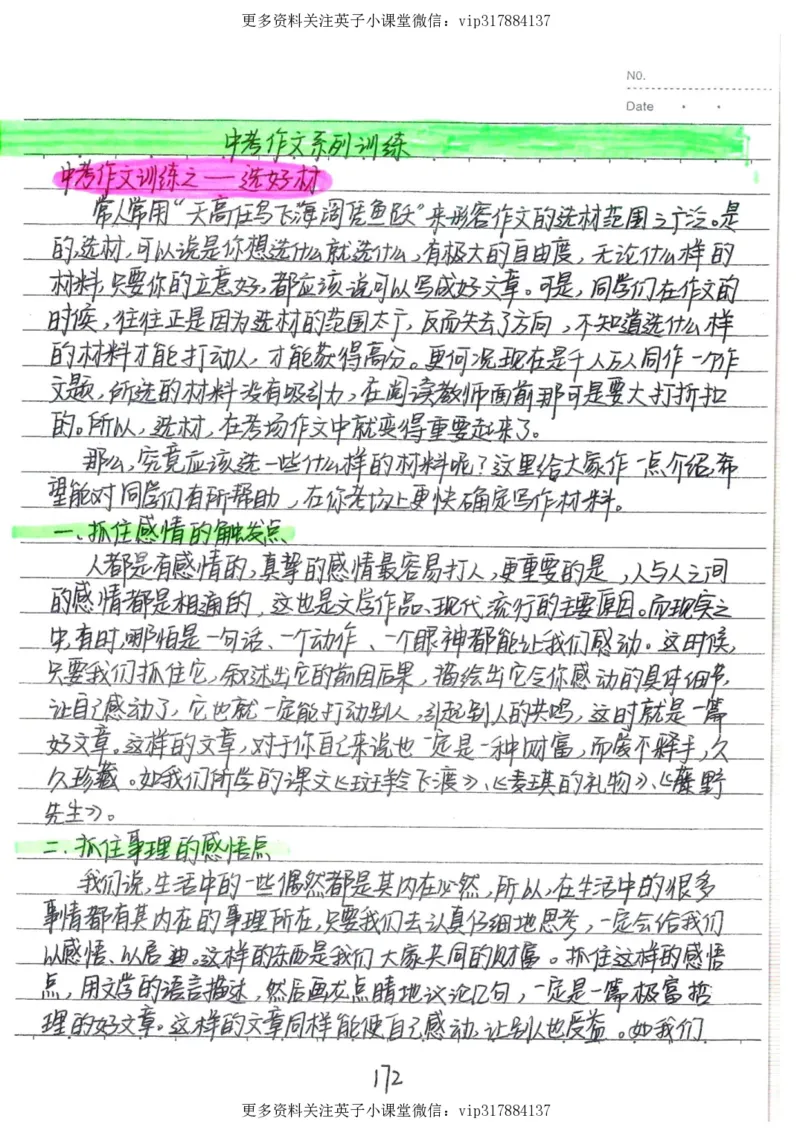 更多资料关注英子小课堂微信：vip317884137
NO.
Date
中考作文系列训练
中考作文训练之一——选好材
常人常用“天高任鸟飞海阔凭鱼跃”来形容作文的选材范围之广泛。是
的,选材,可以说是你想选什么就选什么,有极大的自由度，无论什么样的
材料,只要你的立意好,都应该说可以写成好文章。可是,同学们在作文的
时候，往往正是因为选材的范围太广，反而失去了方向，不知道选什么样
的材料才能打动人，才能获得高分。更何况现在是千人万人同作一个作
文题，所选的材料没有吸引力，在阅读教师面前那可是要大打折扣
的。所以，选材，在考场作文中就变得重要起来了。
那么，究竟应该选一些什么样的材料呢？这里给大家作一点介绍,希
望能对同学们有所帮助，在你考场上更快确定写作材料。
一、抓住感情的触发点
人都是有感情的,真挚的感情最容易打人,更重要的是，人与人之间
的感情都是相通的，这也是文学作品、现代流行的主要原因。而现实之
中,有时,哪怕是一句话、一个动作、一个眼神都能让我们感动。这时候,
只要我们抓住它，叙述出它的前因后果，描绘出它令你感动的具体细节,
让自己感动了，它也就一定能打动别人，引起别人的共鸣，这时就是一篇
好文章。这样的文章，对于你自己来说也一定是一种财富，而爱不释手，久
久珍藏。如我们所学的课文《斑羚飞渡》、《麦琪的礼物》、《藤野
先生》。
二、抓住事理的感悟点
我们说,生活中的一些偶然都是其内在必然，所以，在生活中的很多
事情都有其内在的事理所在,只要我们去认真仔细地思考，一定会给我们
以感悟、以启迪。这样的东西是我们大家共同的财富。抓住这样的感悟
点，用文学的语言描述，然后画龙点睛地议论几句，一定是一篇极富哲
理的好文章。这样的文章同样能使自己感动,让别人也受益。如我们
172
更多资料关注英子小课堂微信：vip317884137